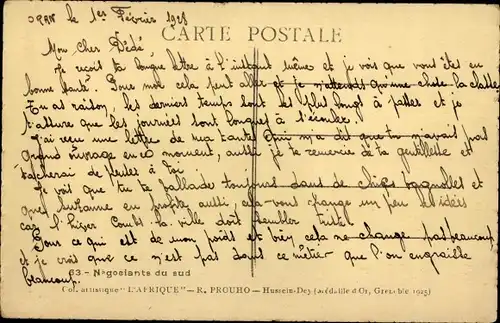 ORAN le 1er Février 1928
CARTE POSTALE
Mon Cher Dédé,
Je reçoit ta longue lettre à l'instant même et je vois que vous êtes en
bonne santé. Pour moi cela peut aller et je n'attends qu'une chose la classe
Tu as raison, les derniers temps sont les plus longs à passer et je
t'assure que les journées sont longues à s'écouler.
J'ai reçu une lettre de ma tante qui m'a dit que tu n'avais pas
grand ouvrage en ce moment, aussi je te remercie de ta gentillesse et
tacherai de penser à toi
Je vois que tu te ballade toujours dans de chics bagnolles et
que Suzanne en profite aussi, cela vous change un peu les idées
car l' la ville doit sembler triste
Pour ce qui est de mon poids et bien cela ne change pas beaucoup
et je crois que ce n'est pas dans ce métier que l'on engraisse
beaucoup.
63 - Négociants du sud
Col. artistique "L'AFRIQUE" - R. PROUHO - Hussein-Dey (Médaille d'Or, Grenoble 1925)